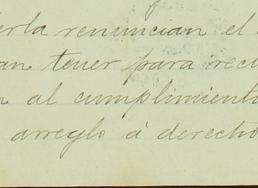 erla renuncian el
an tener para rec
n al cumplimient
arreglo á derecho